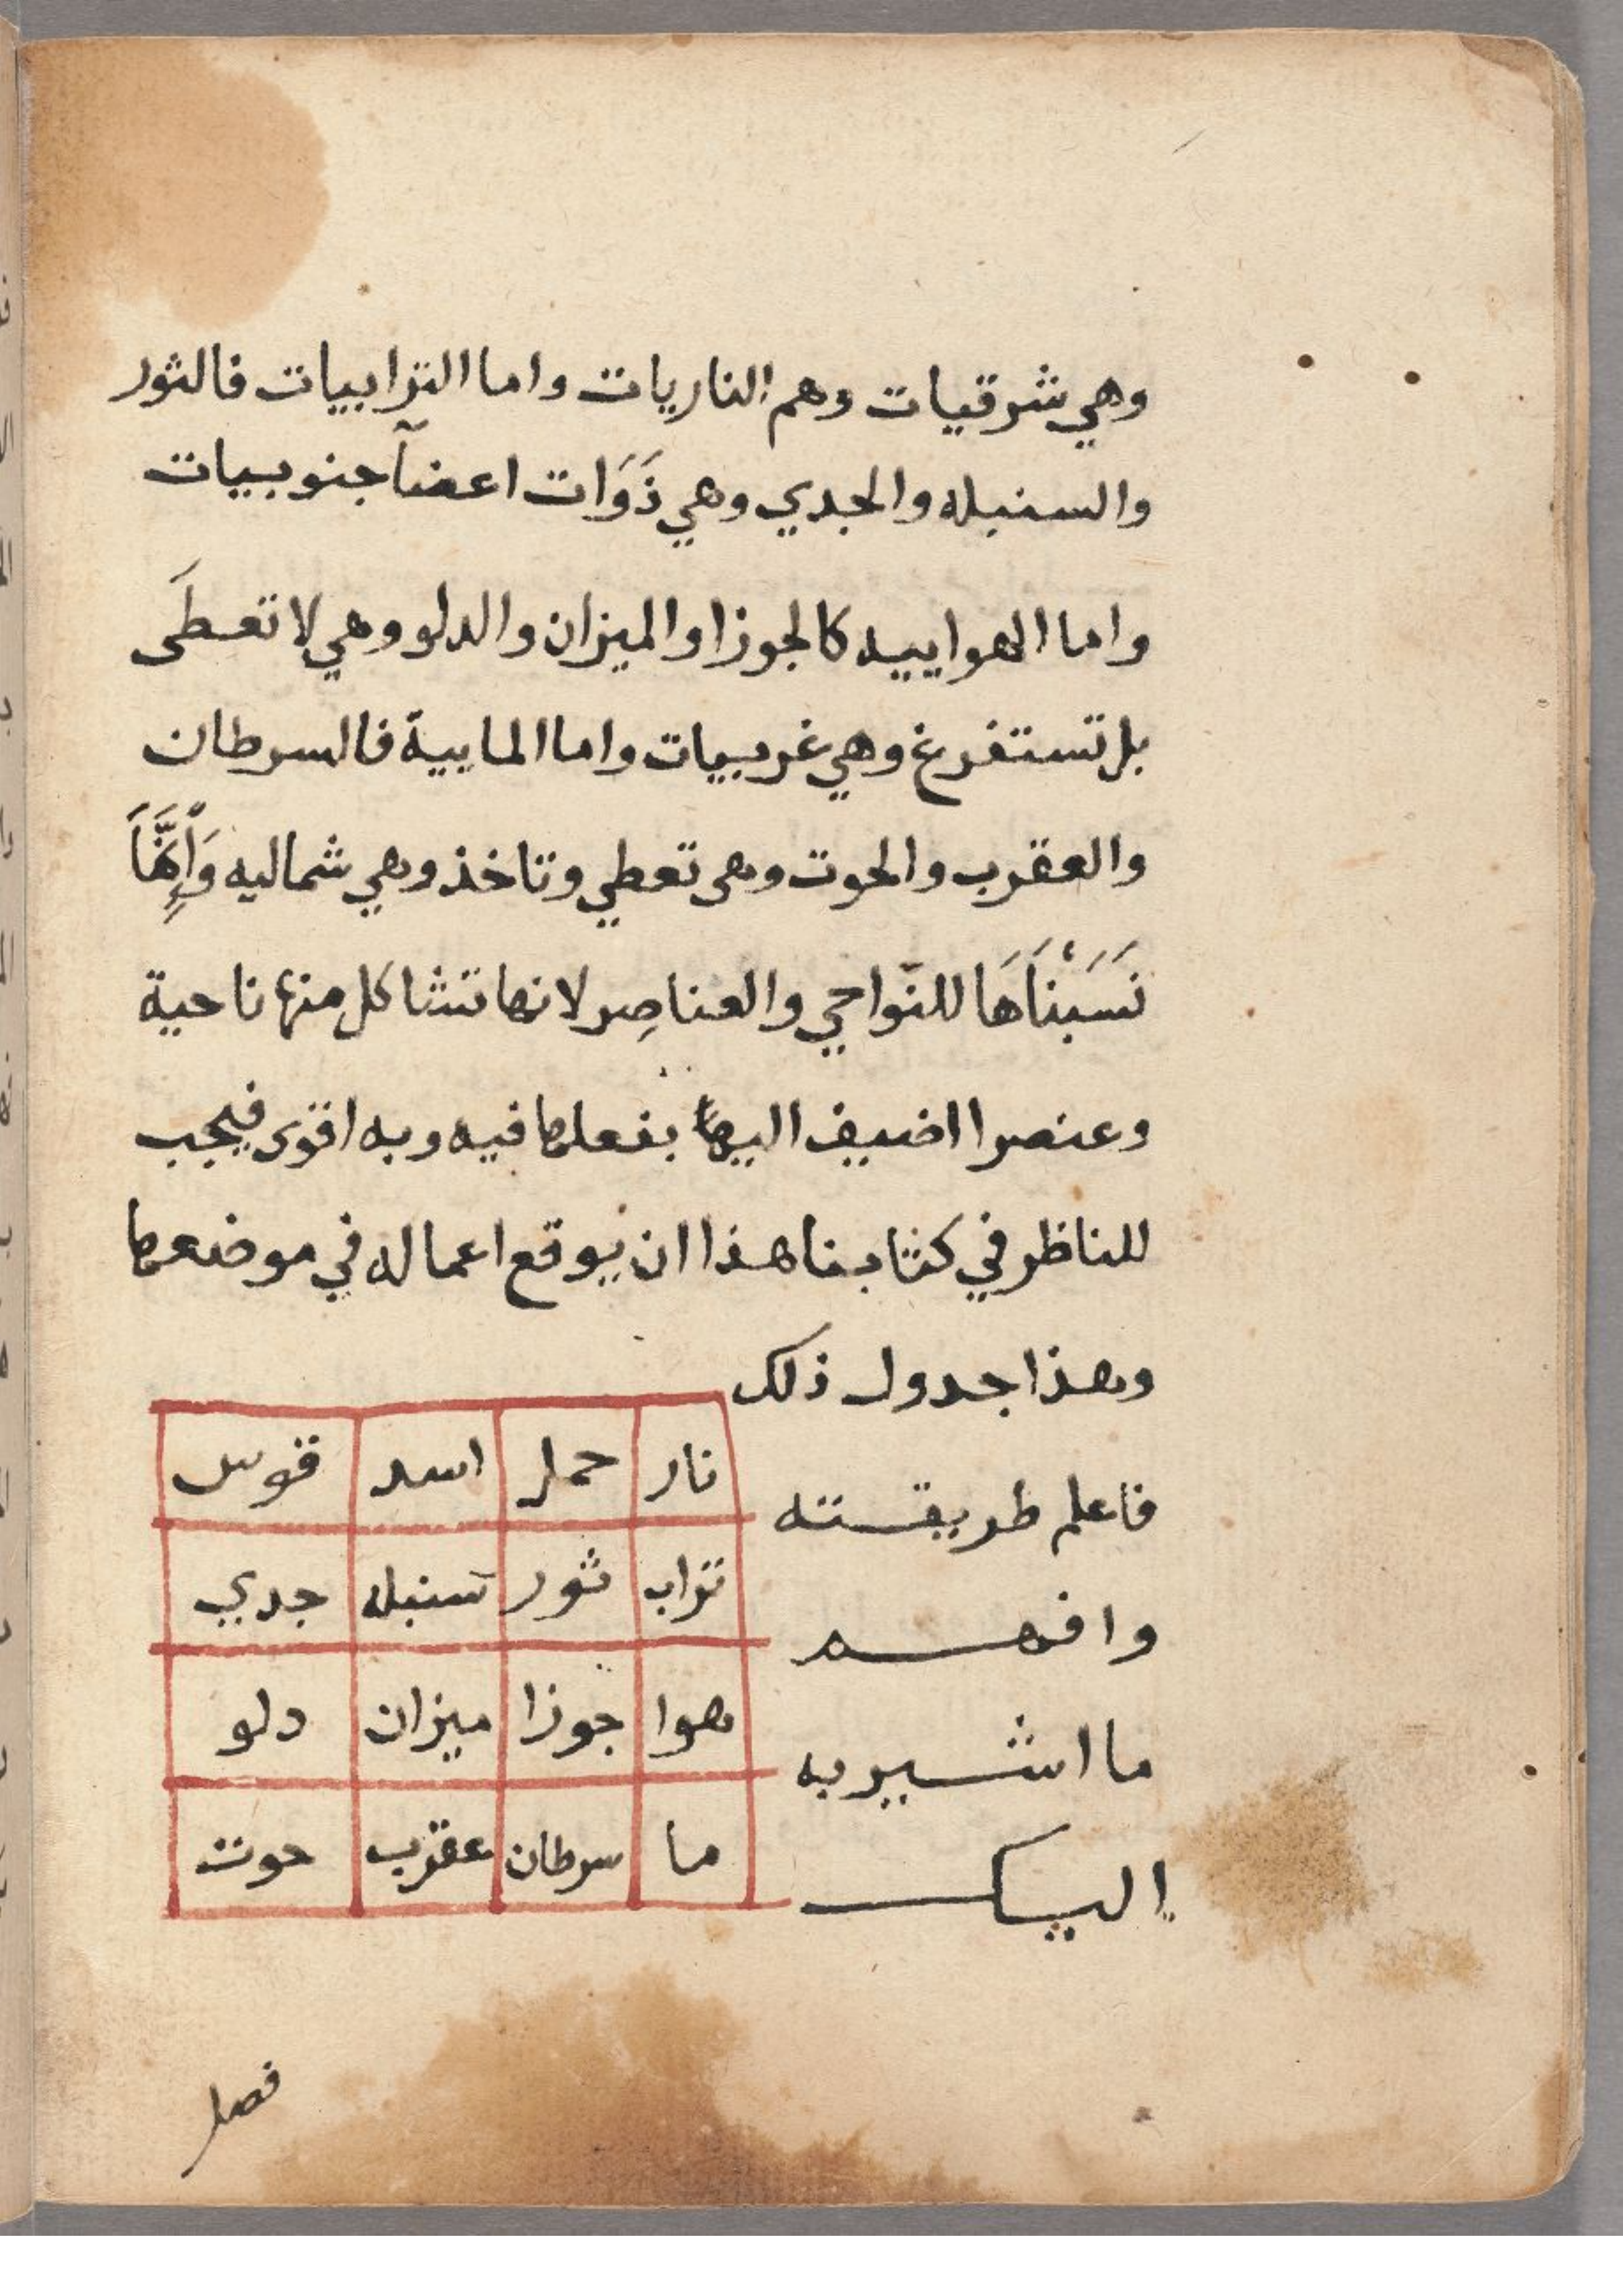 وهي شرقيات وهم الناريات واما الترابيات فالثور
والسنبله والجدي وهي ذَوَات اعضآ جنوبيات
واما الهواييه كالجوزا والميزان والدلو وهي لا تعطَى
بل تستفرغ وهي غربيات واما الماييية فالسرطان
والعقرب والحوت وهى تعطي وتاخذ وهي شماليه وَاِنَّمَا
نَسَبْنَاهَا للنّواحي والعناصِر لانها تشاكل منها ناحية
وعنصرا اضيف اليها بفعلها فيه وبه اقوى فيجب
للناظر في كتابنا هذا ان يوقع اعماله في موضعها
وهذا جدول ذلك
فاعلم طريقته
وافهم
ما اشير به
اليك
نار حمل اسد قوس
تراب ثور سنبله جدي
هوا جوزا ميزان دلو
ما سرطان عقرب حوت
فصل